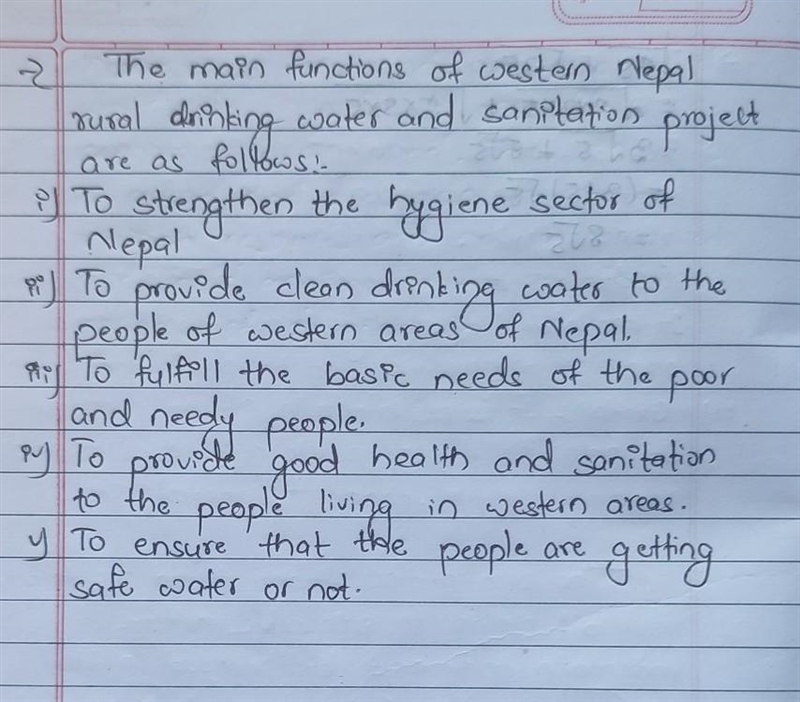 → The main functions of western Nepal
rural drinking water and sanitation project
are as follows:-
i) To strengthen the hygiene sector of
Nepal
ii) To provide clean drinking water to the
people of western areas of Nepal.
iii) To fulfill the basic needs of the poor
and needy people.
iv) To provide good health and sanitation
to the people living in western areas.
v) To ensure that the people are getting
safe water or not.